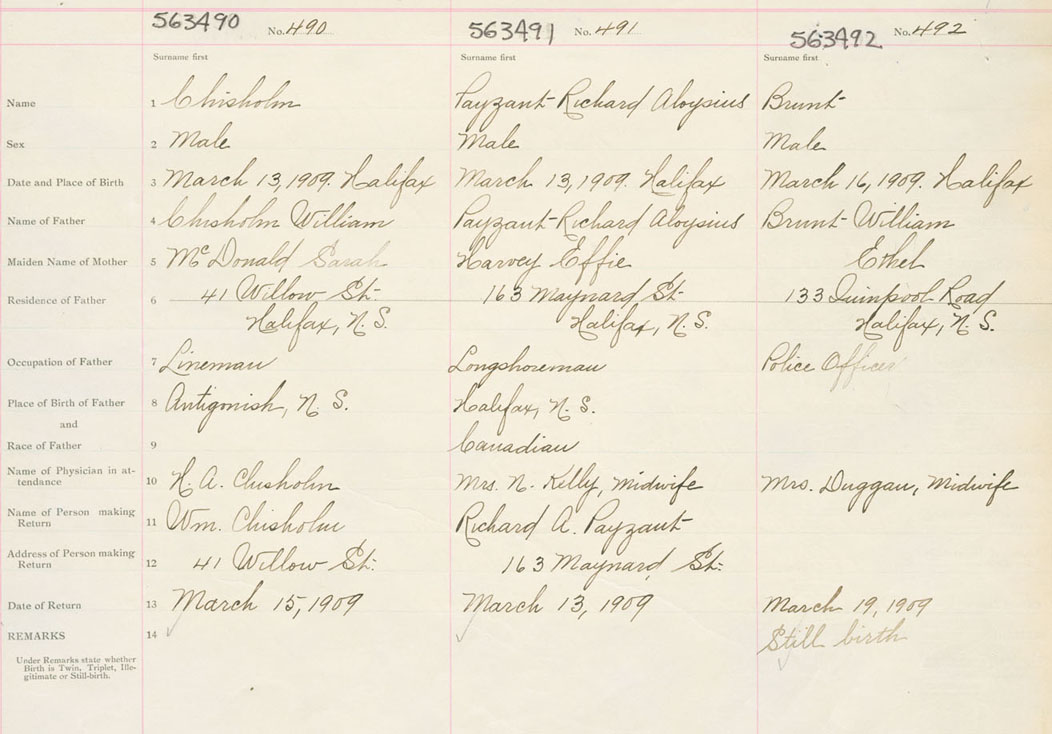 563490 No. 490 563491 No. 491 563492 No. 492
Surname first Surname first Surname first
Name 1 Chisholm Payzant Richard Aloysius Brunt
Sex 2 Male Male Male
Date and Place of Birth 3 March 13, 1909. Halifax March 13, 1909. Halifax March 16, 1909. Halifax
Name of Father 4 Chisholm William Payzant Richard Aloysius Brunt William
Maiden Name of Mother 5 McDonald Sarah Harvey Effie Ethel
Residence of Father 6 41 Willow St. 163 Maynard St. 133 Quinpool Road
Halifax, N.S. Halifax, N.S. Halifax, N.S.
Occupation of Father 7 Lineman Longshoreman Police Officer
Place of Birth of Father 8 Antigonish, N.S. Halifax, N.S.
and
Race of Father 9 Canadian
Name of Physician in at-
tendance 10 H. A. Chisholm Mrs. N. Kelly, Midwife Mrs. Duggan, Midwife
Name of Person making
Return 11 Wm. Chisholm Richard A. Payzant
Address of Person making
Return 12 41 Willow St. 163 Maynard St.
Date of Return 13 March 15, 1909 March 13, 1909 March 19, 1909
REMARKS 14 Still birth
Under Remarks state whether
Birth is Twin, Triplet, Ille-
gitimate or Still-birth.